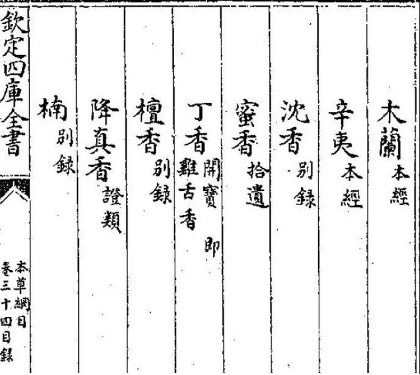 木蘭本經
辛夷本經
沈香别録
蜜香拾遺
丁香開寶即雞舌香
檀香别録
降真香證類
楠别録
欽定四庫全書
本草綱目
卷三十四目録